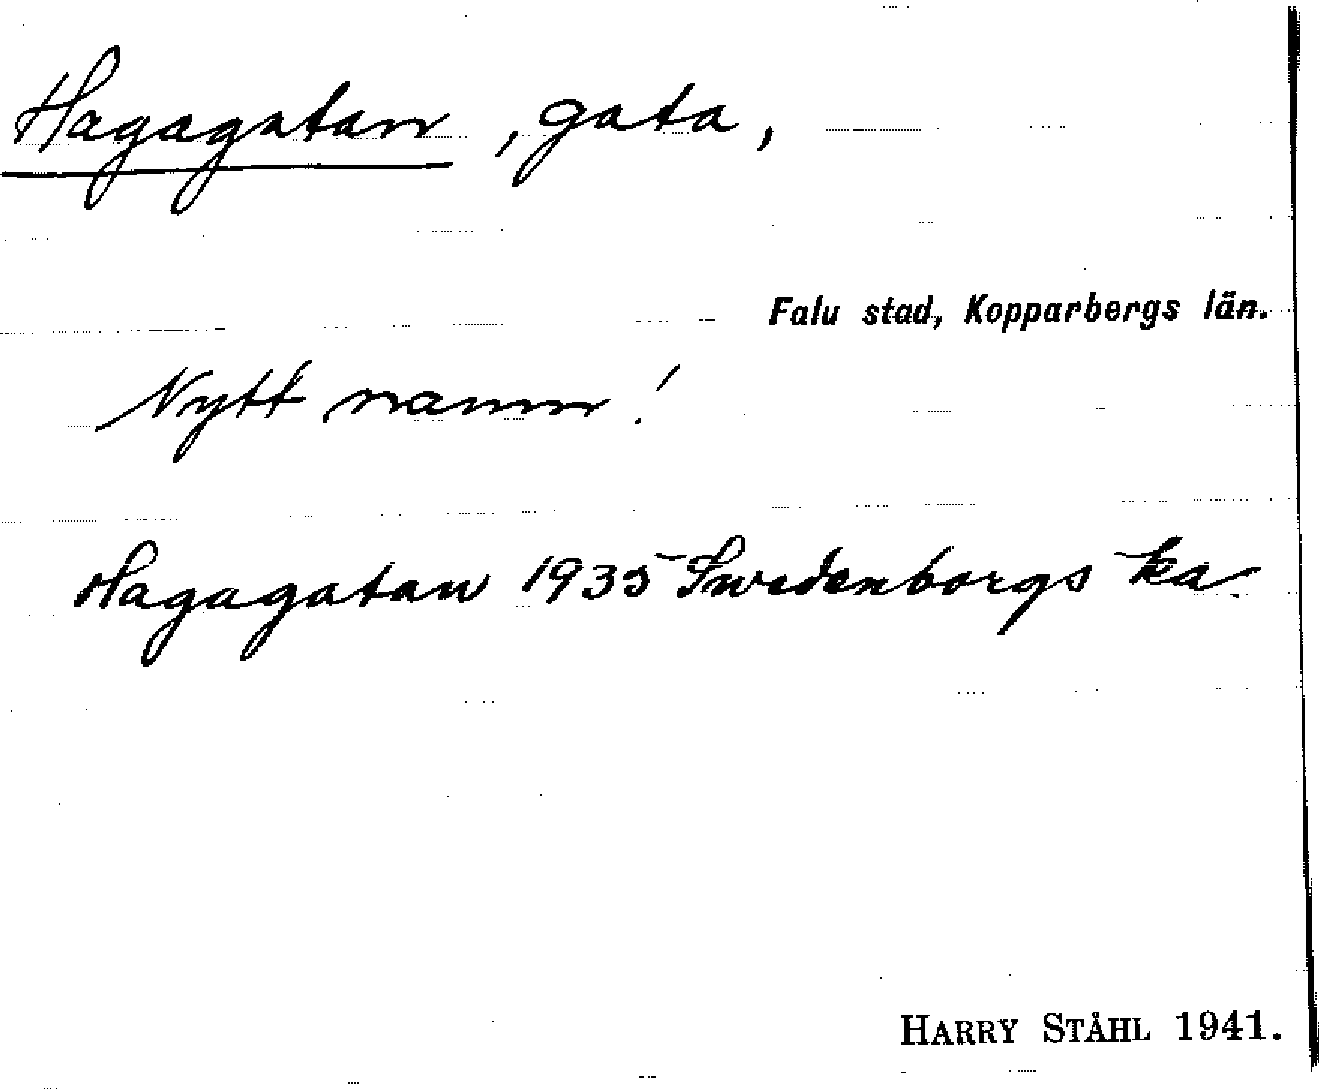 Hagagatan, gata,
Falu stad, Kopparbergs län.
Nytt namn!
Hagagatan 1935 Swedenborgs ka
HARRY STÅHL 1941.